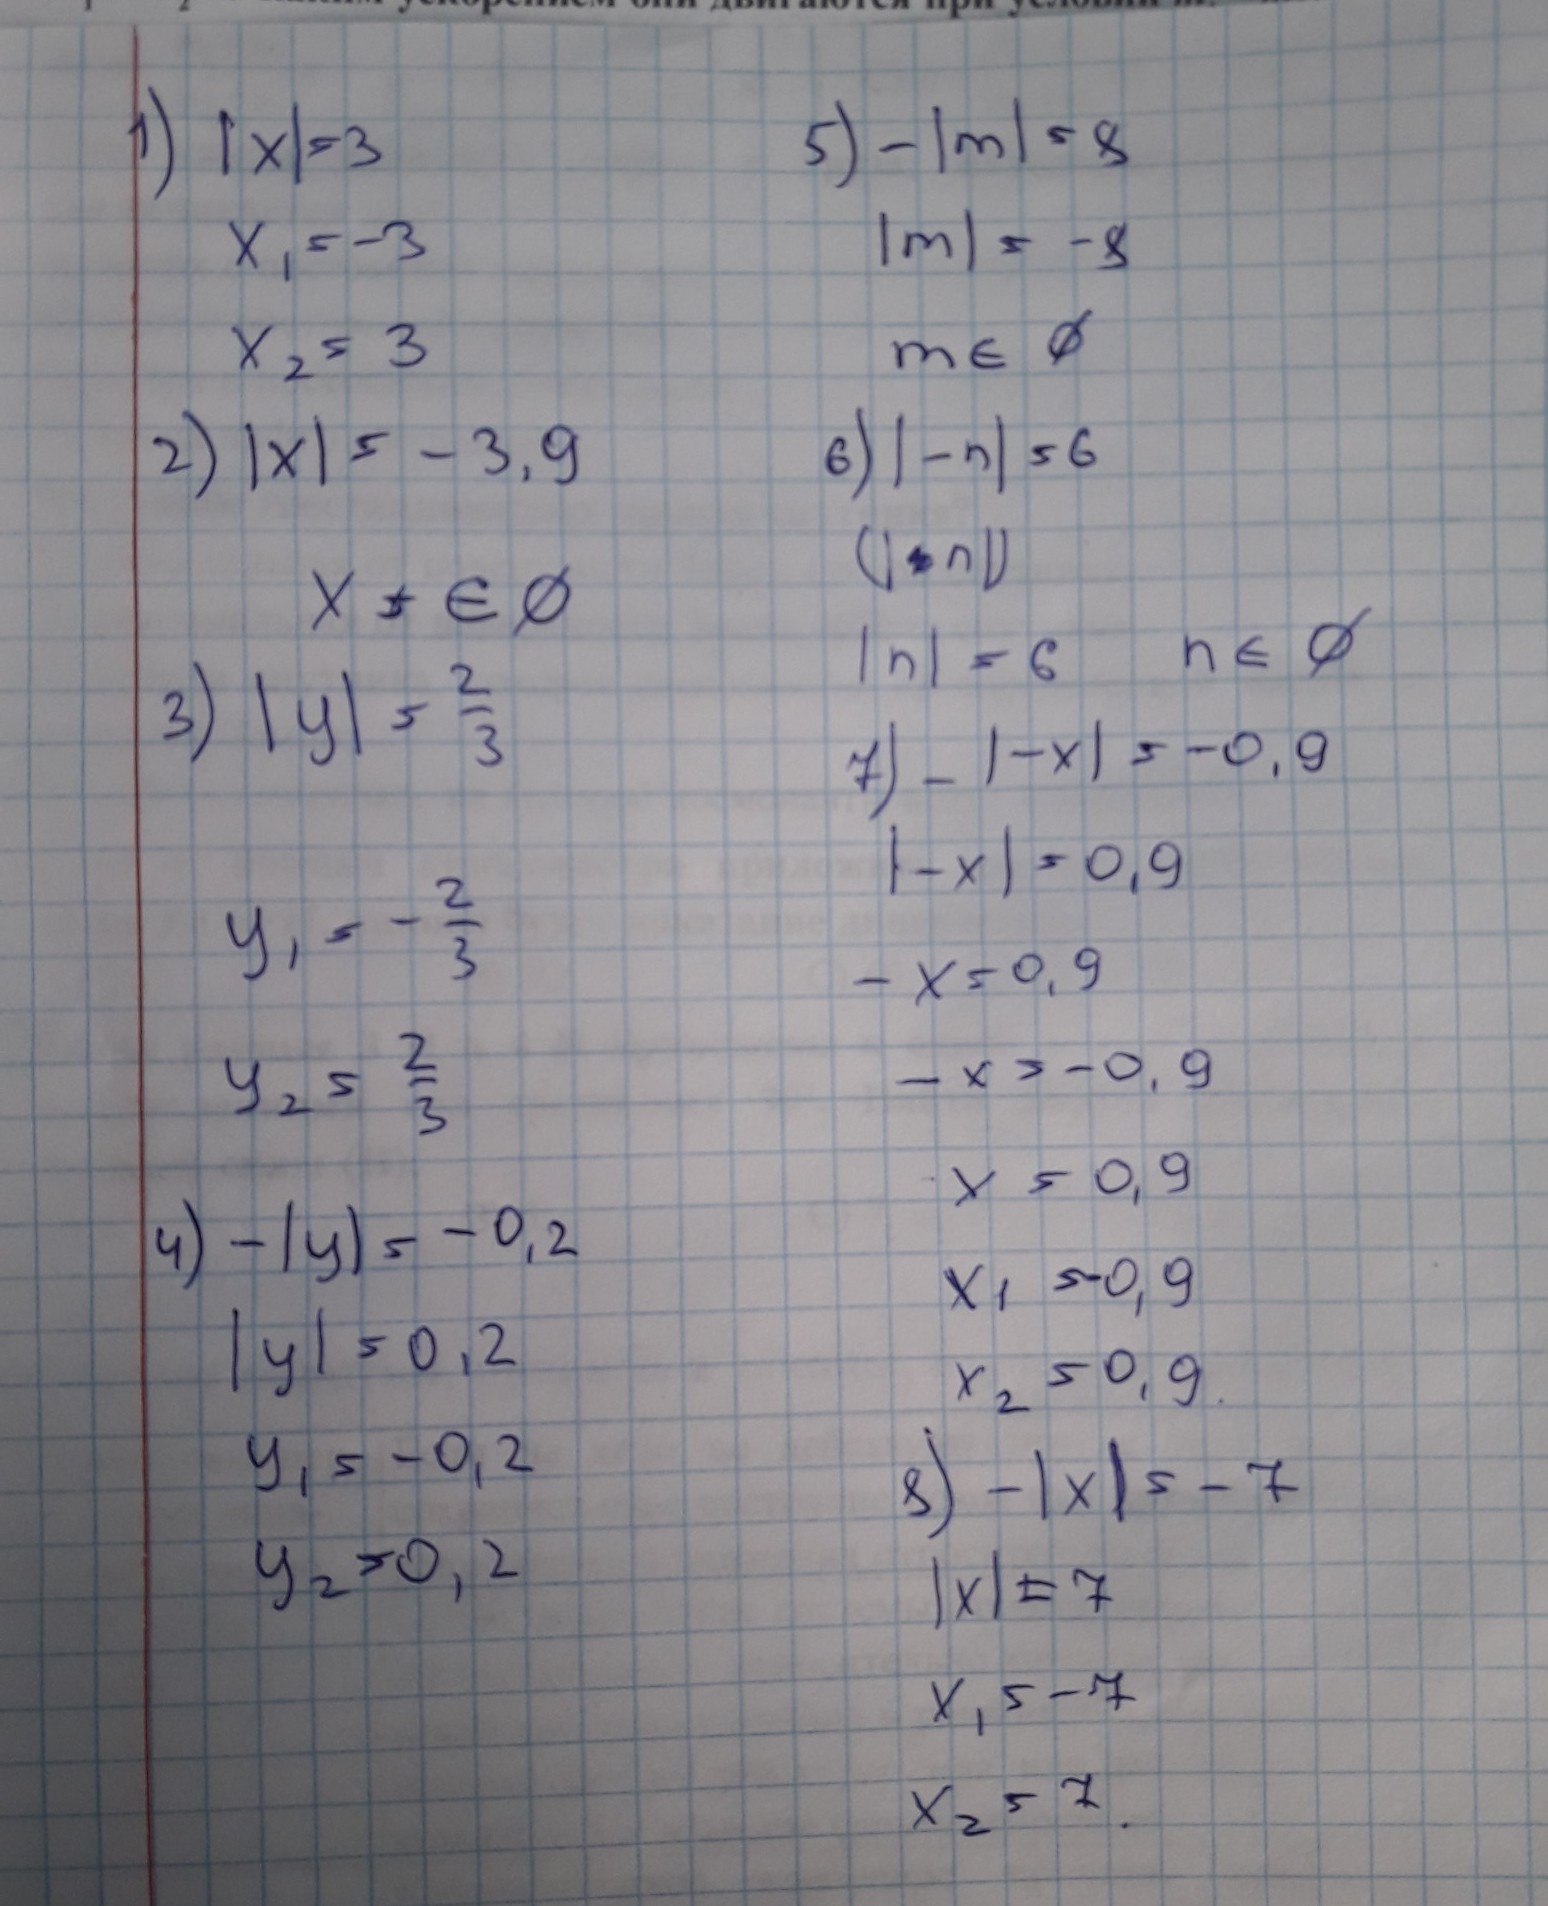 ускорением они двигаются при условии m
1) |x|=3
x₁=-3
x₂=3
2) |x|=-3,9
x ∈ ∅
3) |y|=2/3
y₁=-2/3
y₂=2/3
4) -|y|=-0,2
|y|=0,2
y₁=-0,2
y₂=0,2
5) -|m|=8
|m|=-8
m∈ ∅
6) |-n|=6
(|n|)
|n|=6 n∈ ∅
7) -|-x|=-0,9
|-x|=0,9
-x=0,9
-x=-0,9
x=0,9
x₁=-0,9
x₂=0,9.
8) -|x|=-7
|x|=7
x₁=-7
x₂=7.